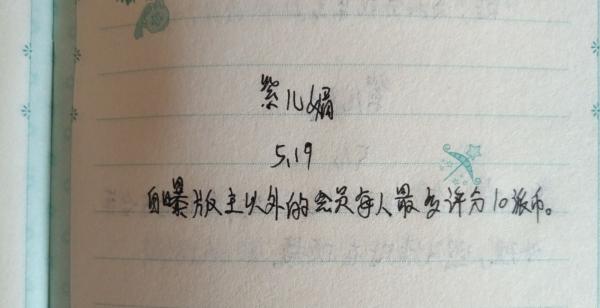 紫儿娟
5.19
自曝版主以外的会员每人最多评分10派币。